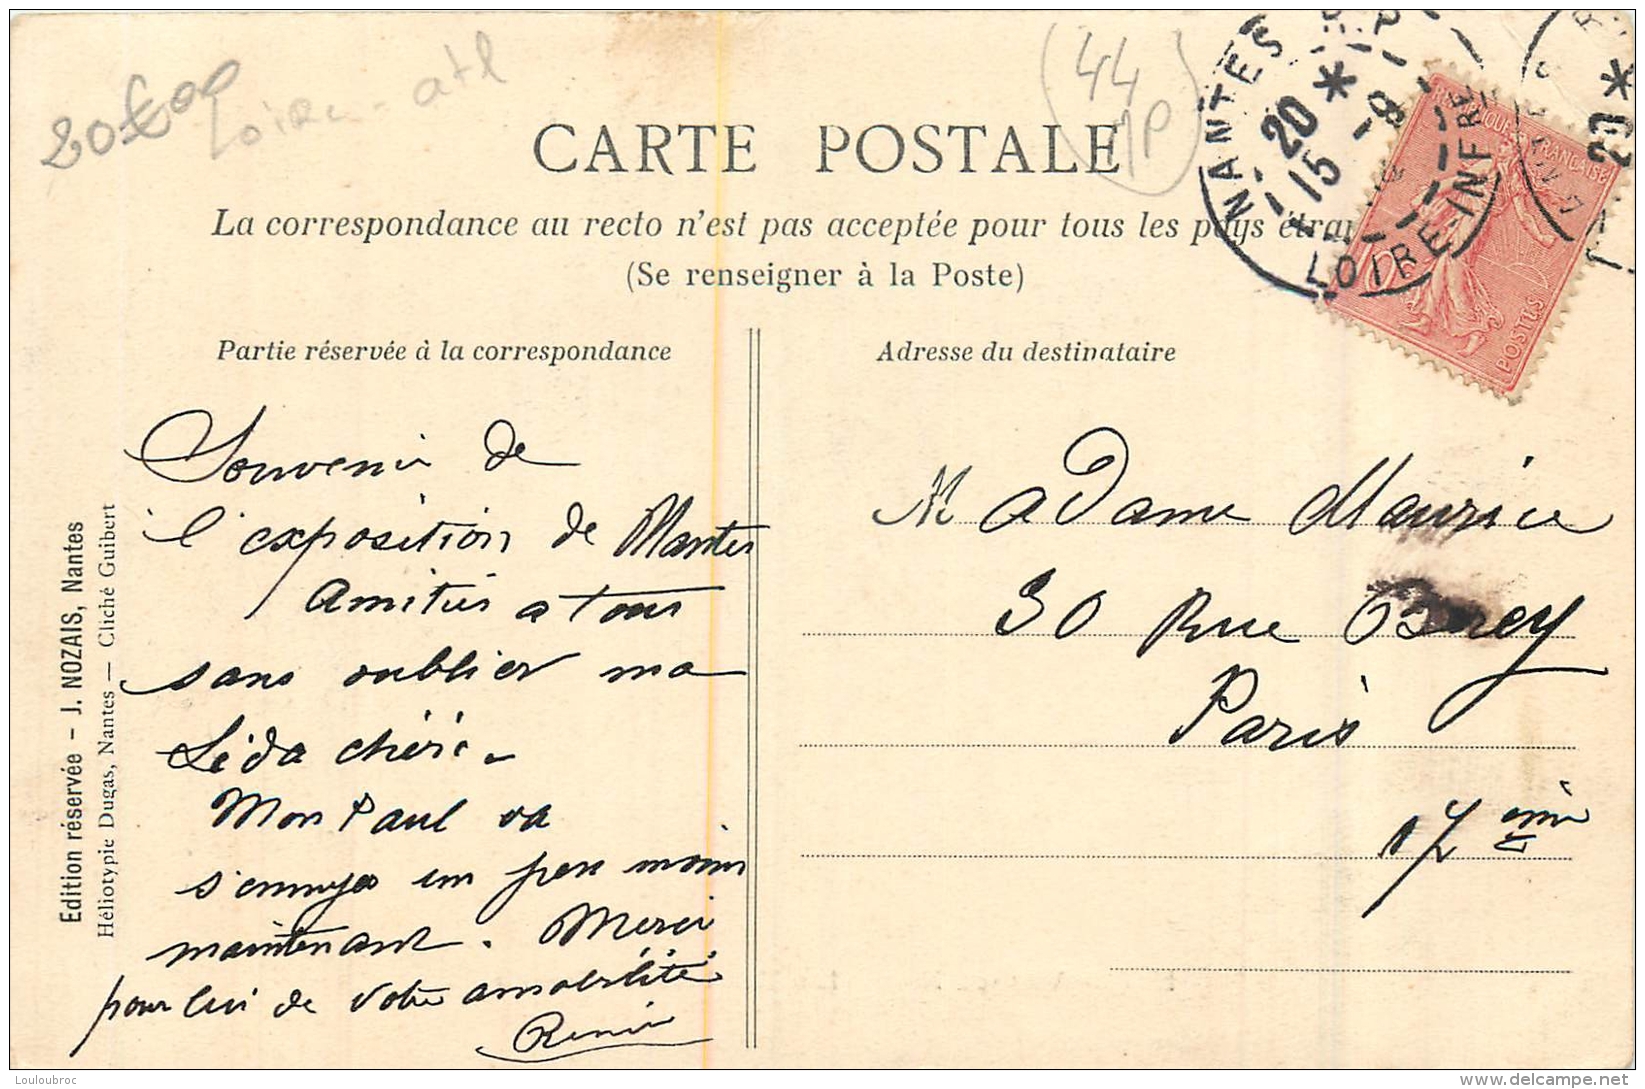 20€00
Loire-atl
(44
NP)
CARTE POSTALE
La correspondance au recto n'est pas acceptée pour tous les pays étran
(Se renseigner à la Poste)
NANTES
LOIRE INFRE
20 *
15 -9
20 *
RÉPUBLIQUE FRANÇAISE
POSTES
Partie réservée à la correspondance
Adresse du destinataire
Souvenir de
l'exposition de Nantes
Amitiés a tous
sans oublier ma
Léda chérie -
Mon Paul va
s'ennuyer un peu moins
maintenant. Merci
pour lui de votre amabilité
Madame Maurice
30 Rue Brey
Paris
17 ème
Edition réservée - J. NOZAIS, Nantes
Héliotypie Dugas, Nantes — Cliché Guibert
Louloubroc
delcampe.net